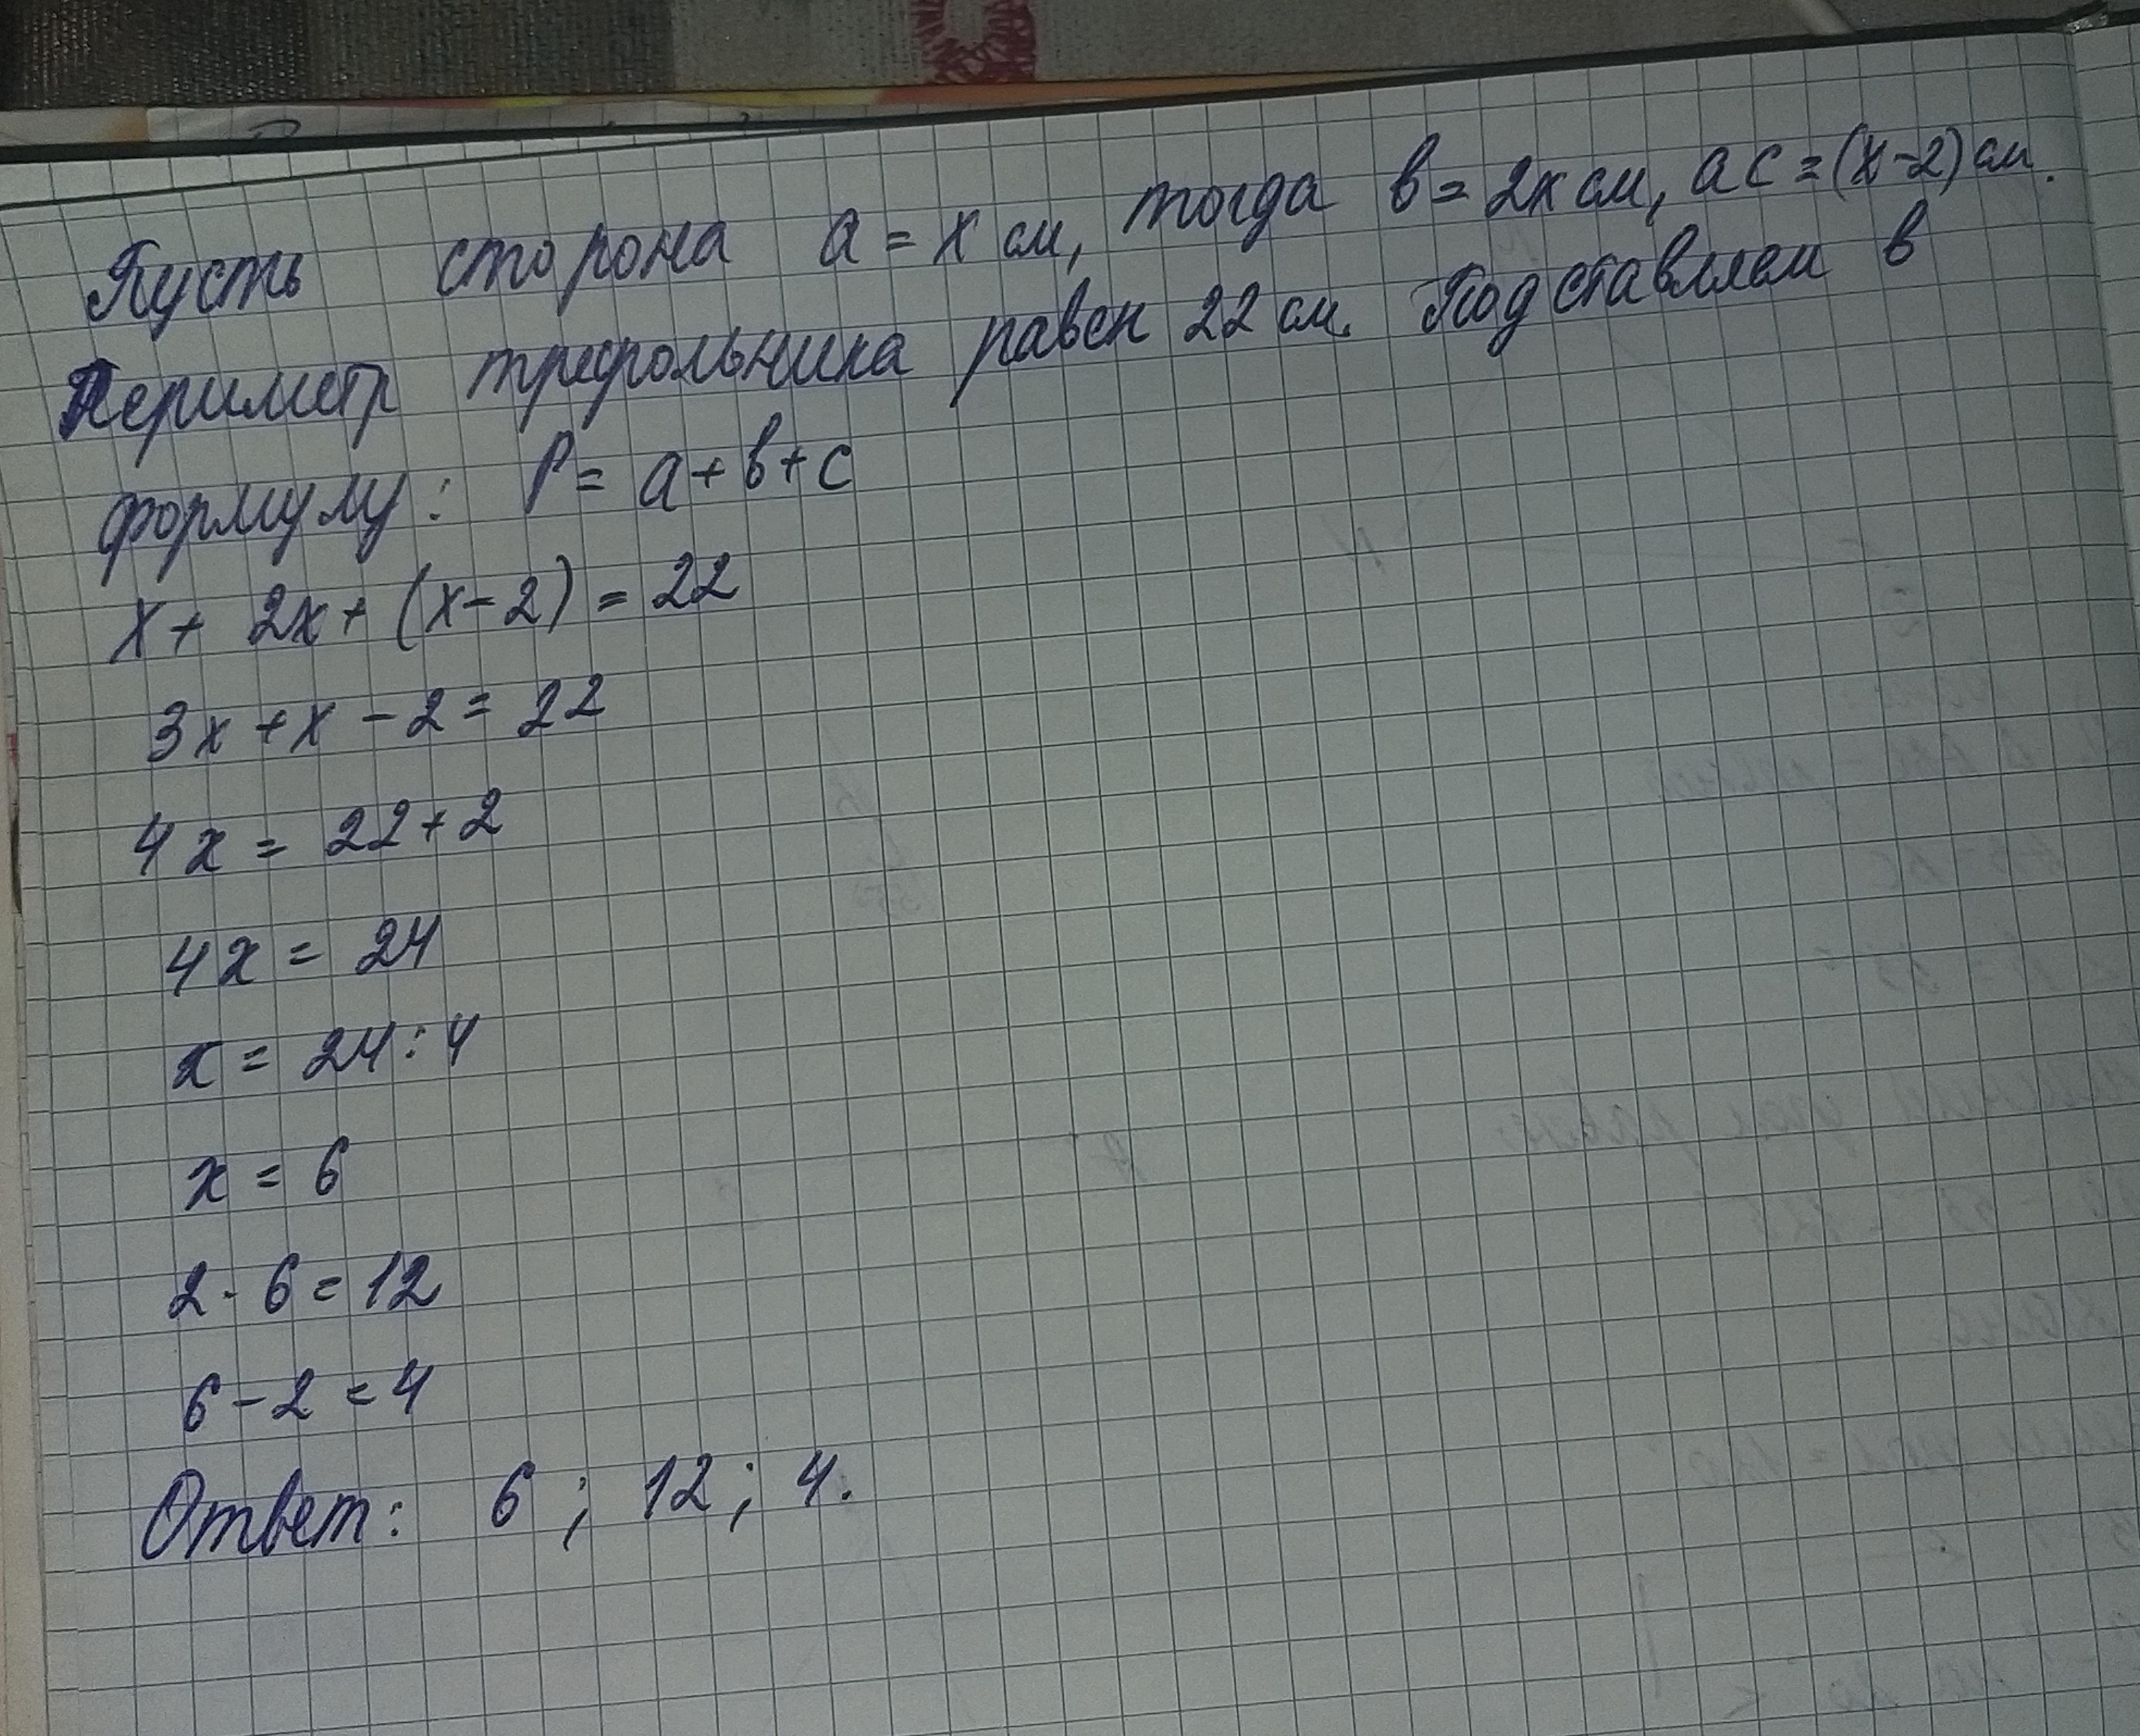 Пусть сторона a = x см, тогда b = 2x см, а c = (x-2) см.
Периметр треугольника равен 22 см. Подставляем в
формулу: P = a + b + c
x + 2x + (x - 2) = 22
3x + x - 2 = 22
4x = 22 + 2
4x = 24
x = 24 : 4
x = 6
2 · 6 = 12
6 - 2 = 4
Ответ: 6 ; 12 ; 4.